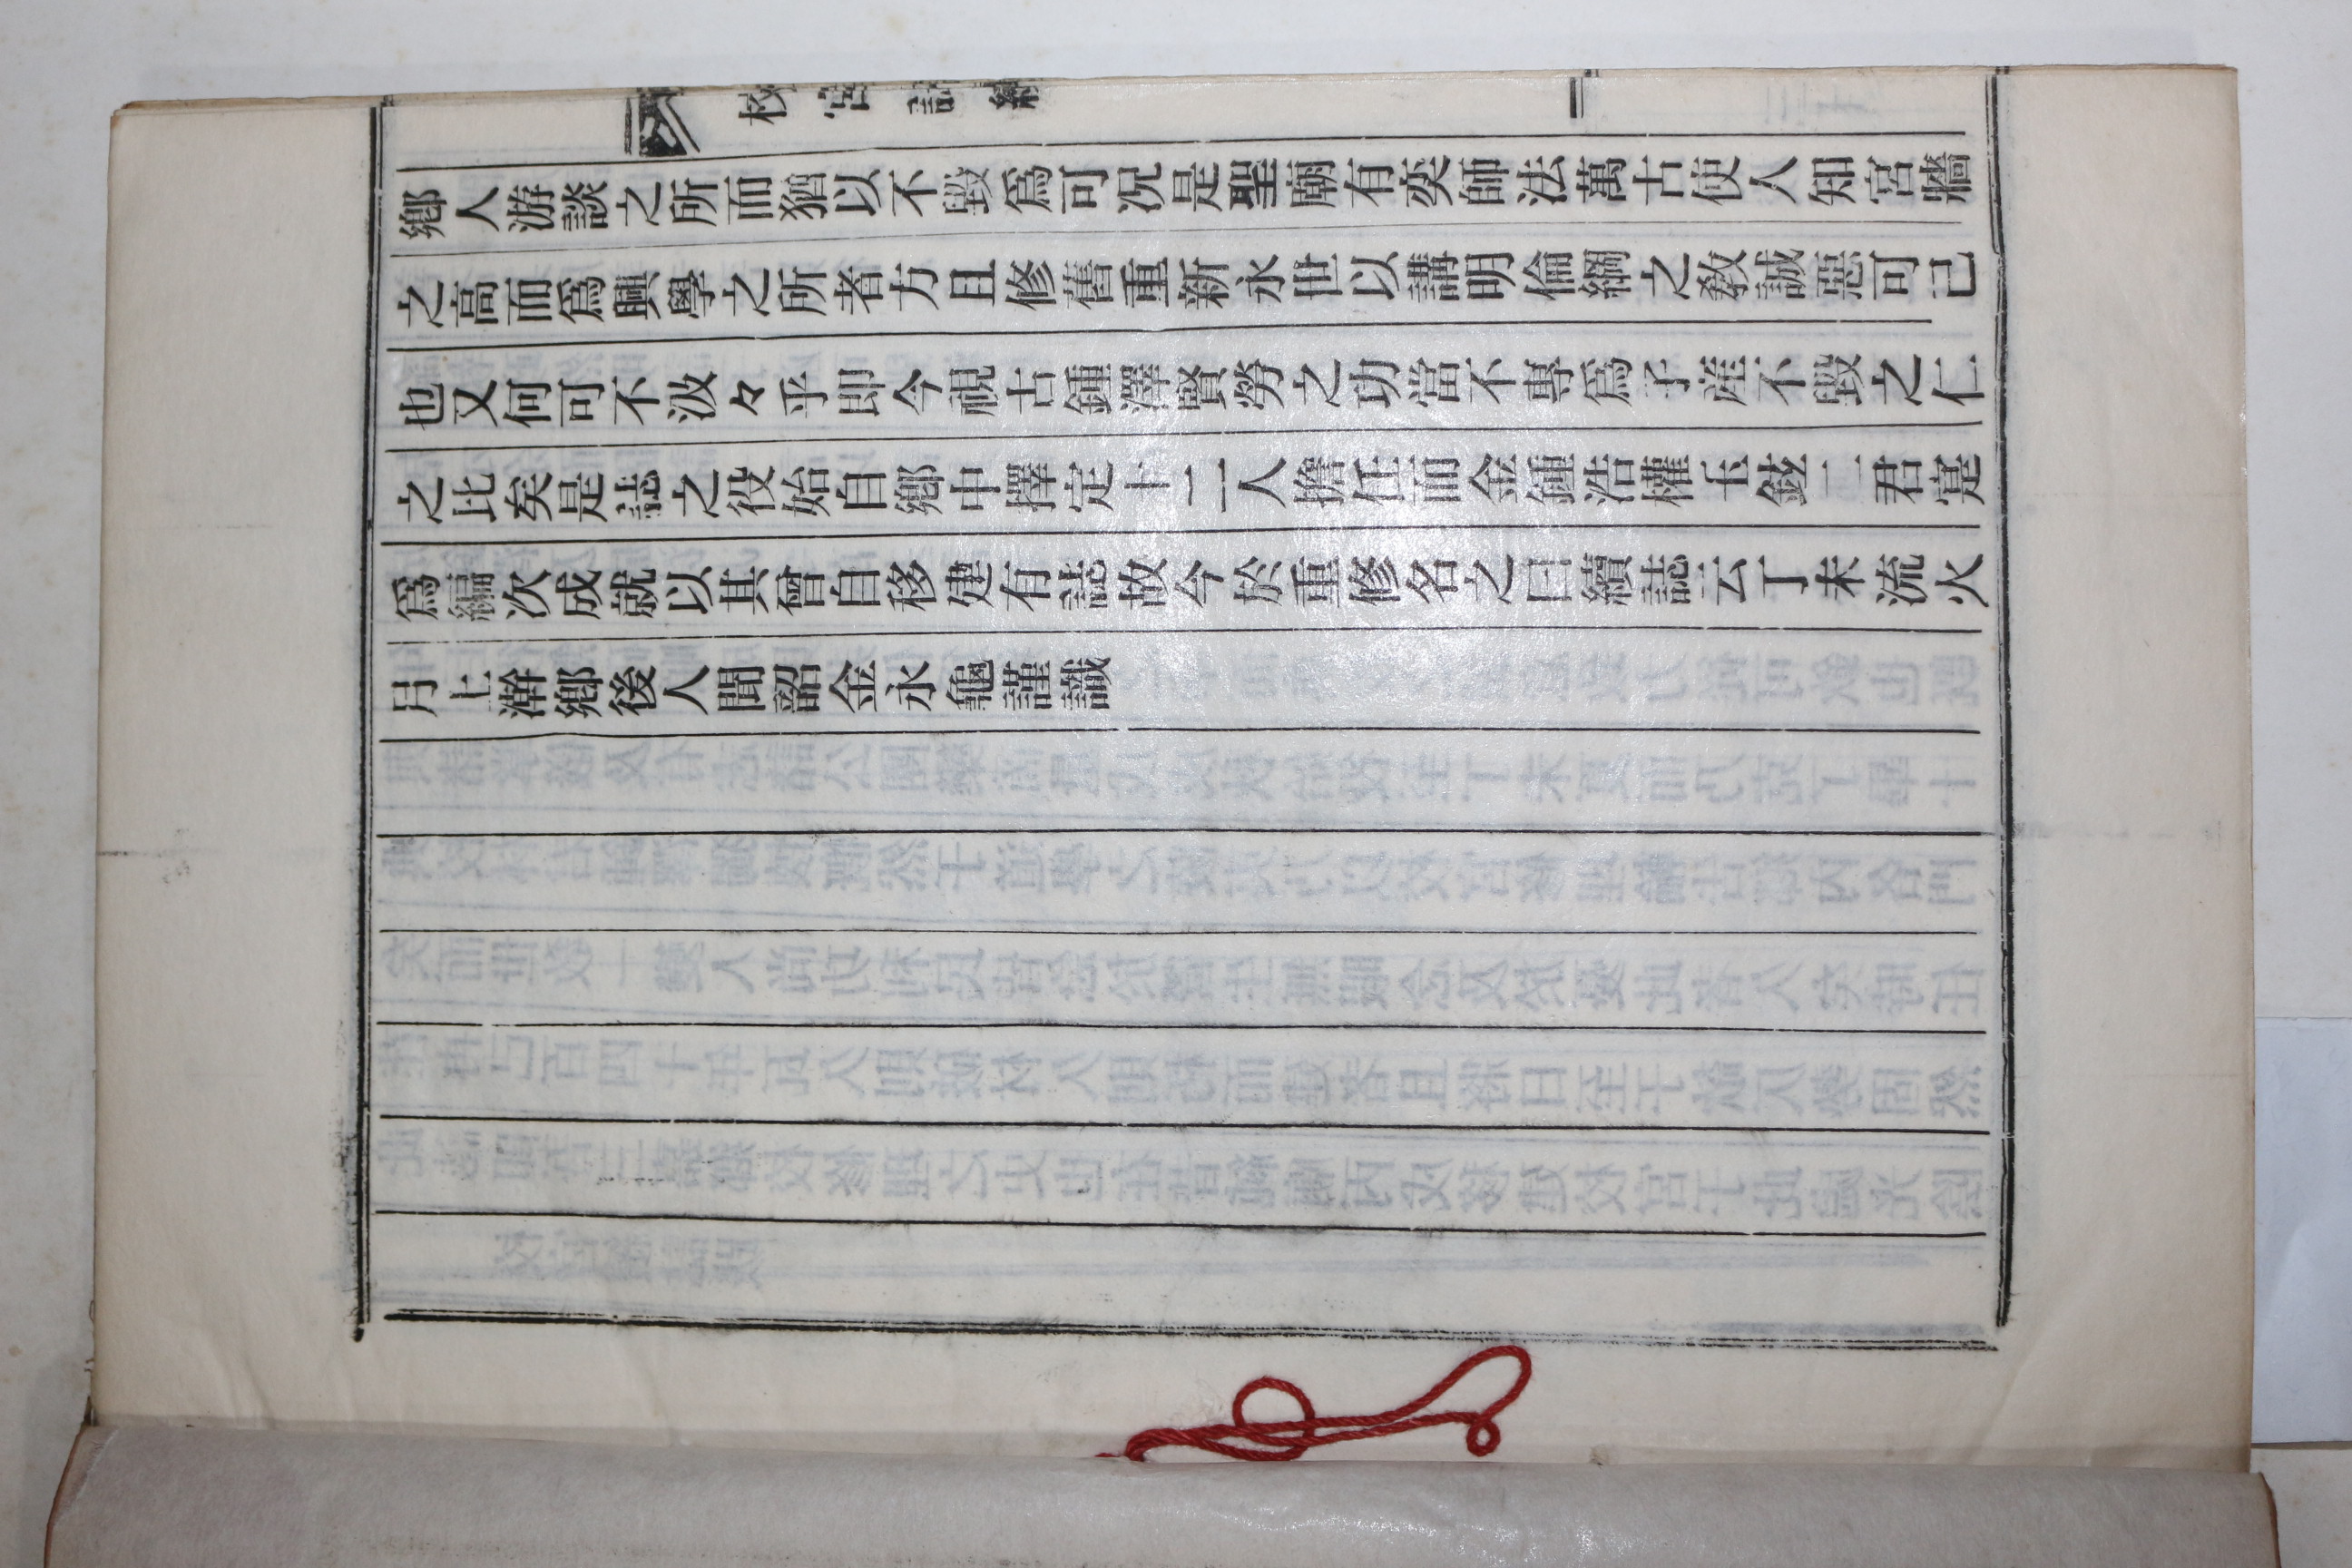 校宮誌續
鄕人游談之所而猶以不毀爲可况是聖廟有奕師法萬古使人知宮牆
之高而爲興學之所者方且修舊重新永世以講明倫綱之敎誠惡可己
也又何可不汲々乎即今視古鍾澤賢勞之功當不專爲子産不毀之仁
之比矣是誌之役始自鄕中擇定十二人擔任而金鍾浩權玉鉉二君寔
爲編次成就以其曾自移建有誌故今於重修名之曰續誌云丁未流火
月上澣鄕後人聞韶金永龜謹識